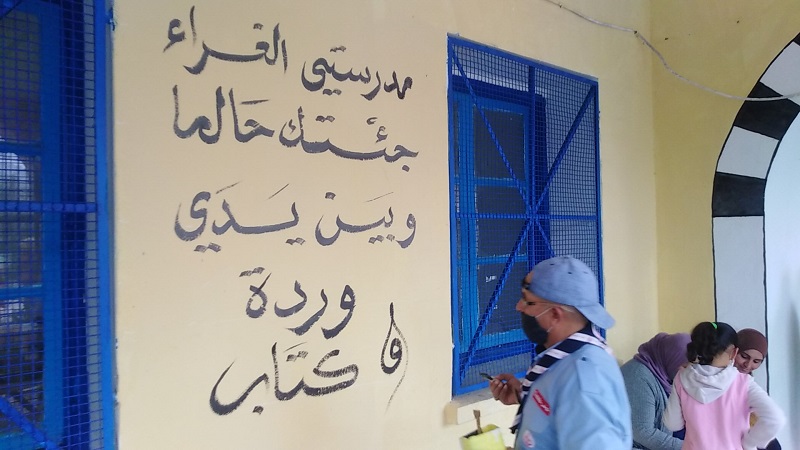 مدرستي الغراء
جئتك حَالما
وبَيَـن يـَدَي
وردة
و كتَاب